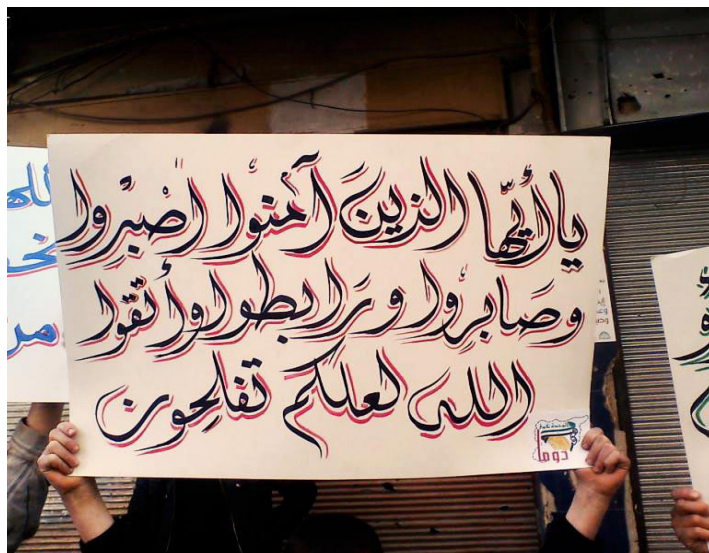 يا أيّها الذين آمنوا اصْبِروا
وصَابِروا ورَابطوا وأتقوا
الله لعلكم تفلحون
دوما